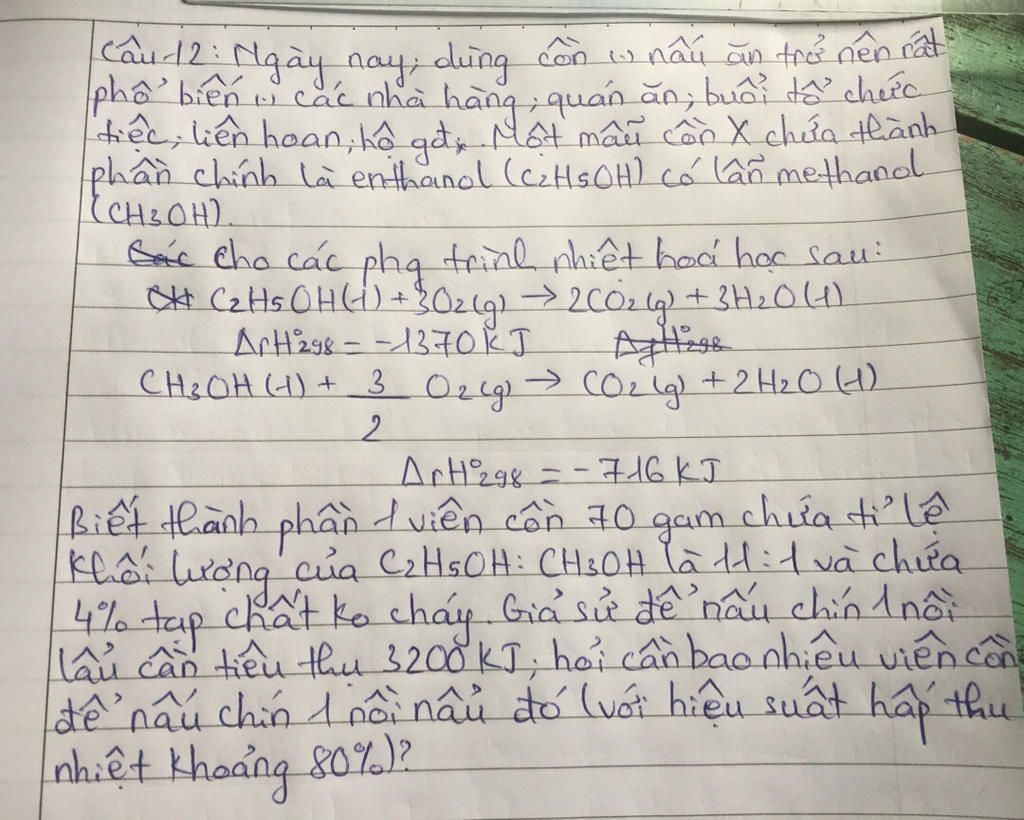 Câu 12: Ngày nay; dùng cồn (..) nấu ăn trở nên rất
phổ biến (..) các nhà hàng; quán ăn; buổi tổ chức
tiệc; liên hoan; hộ gđ. Một mẫu cồn X chứa thành
phần chính là enthanol (C2H5OH) có lẫn methanol
(CH3OH).
Cho các phg trình nhiệt hoá học sau:
C2H5OH(l) + 3O2(g) → 2CO2(g) + 3H2O(l)
ΔrH°298 = -1370 kJ
CH3OH(l) + 3/2 O2(g) → CO2(g) + 2H2O(l)
ΔrH°298 = -716 kJ
Biết thành phần 1 viên cồn 70 gam chứa tỉ lệ
khối lượng của C2H5OH: CH3OH là 11:1 và chứa
4% tạp chất ko cháy. Giả sử để nấu chín 1 nồi
lẩu cần tiêu thụ 3200 kJ; hỏi cần bao nhiêu viên cồn
để nấu chín 1 nồi nẩu đó (với hiệu suất hấp thu
nhiệt khoảng 80%)?